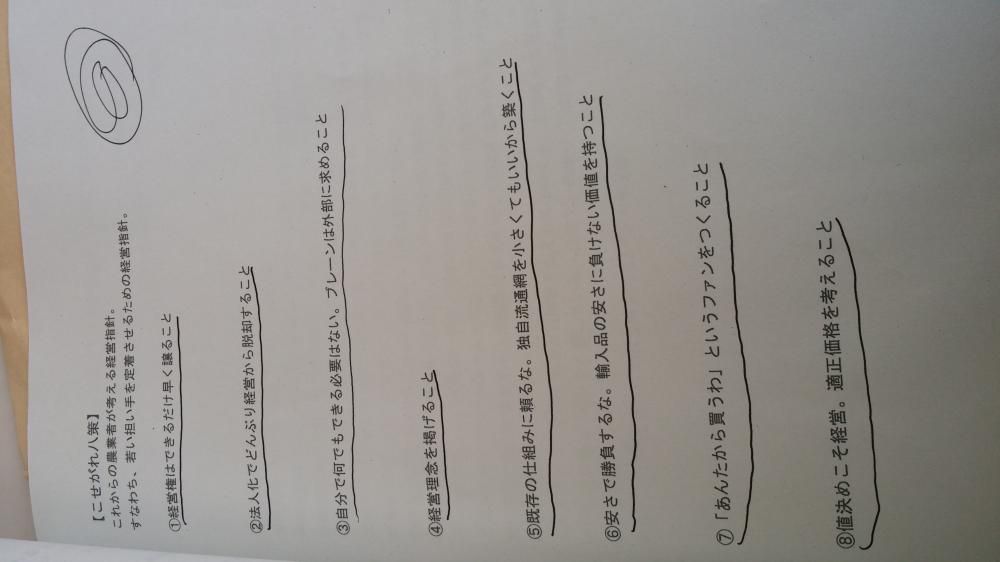 【こせがれ八策】
これからの農業者が考える経営指針。
すなわち、若い担い手を定着させるための経営指針。
①経営権はできるだけ早く譲ること
②法人化でどんぶり経営から脱却すること
③自分で何でもできる必要はない。ブレーンは外部に求めること
④経営理念を掲げること
⑤既存の仕組みに頼るな。独自流通網を小さくてもいいから築くこと
⑥安さで勝負するな。輸入品の安さに負けない価値を持つこと
⑦「あんたから買うわ」というファンをつくること
⑧値決めこそ経営。適正価格を考えること